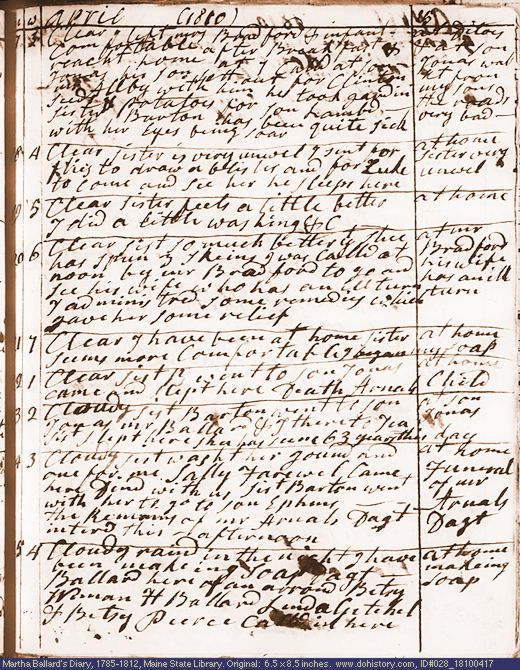 April (1810)
Clear I left mrs Bradford & infant
Comfortable after Breakfast &
reacht home at
my son set out for
with him he took
potatoes for son Lambd
Sister Barton has
with her Eyes being soar quite sick
at son
Jonas was
my sons
the roads
very bad
4 Clear Sister is very unwel I sent for
flies to draw a blister and for Luke
to come and see her he sleeps here
at home
Sister very
unwel
5 Clear Sister feels a little better
I did a little washing &C
at home
20 6 Clear Sist so much better is she
has spun 2 skeins I was calld at
noon by mr Bradford to go and
see his wife who has an ill turn
I administred some remedies which
gave her some relief
at mr
Bradford
his wife
has an ill
turn
7 Clear I have been at home sister
seems more Comfortable began my soap
at home
1 Clear Sist B went to son Jonas
came and slept here Death Arnals Child
at home
3 2 Cloudy Sist Barton went to son
Jonas mr Ballard & I there to Tea
Sist slept here she has seene 63 years this day
at son
Jonas
4 3 Cloudy Sist washt her gound and
one for me Sally Farewel Came
here Dind with us Sist Barton went
with her to go to son Ephms
The Remains of mr Arnals Dagt
interd this afternoon
at home
Funeral
of mr
Arnals
Dagt
5 4 Cloudy raind in the night I have
been makeing Soap Dagt
Ballard here afternoon Betsy
Wiman H Ballard Linda Getchel
& Betsy Pierce Calld in here
at home
makeing
soap
Martha Ballard's Diary, 1785-1812, Maine State Library. Original: 6.5 x 8.5 inches. www.dohistory.com, ID#028_18100417